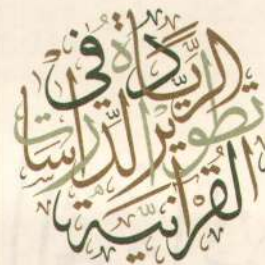 الرِّيَادَةُ فِي
تطوير الدِّراسات
القُرْآنِيَّة